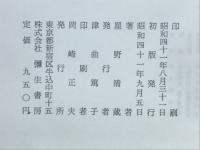 印刷
昭和四十一年八月三十一日
初版発行
昭和四十一年九月五日
著者
星野清蔵
発行者
津曲篤子
印刷者
発行所
東京都新宿区牛込中町十五
株式会社 彌生書房
定価 九五〇円